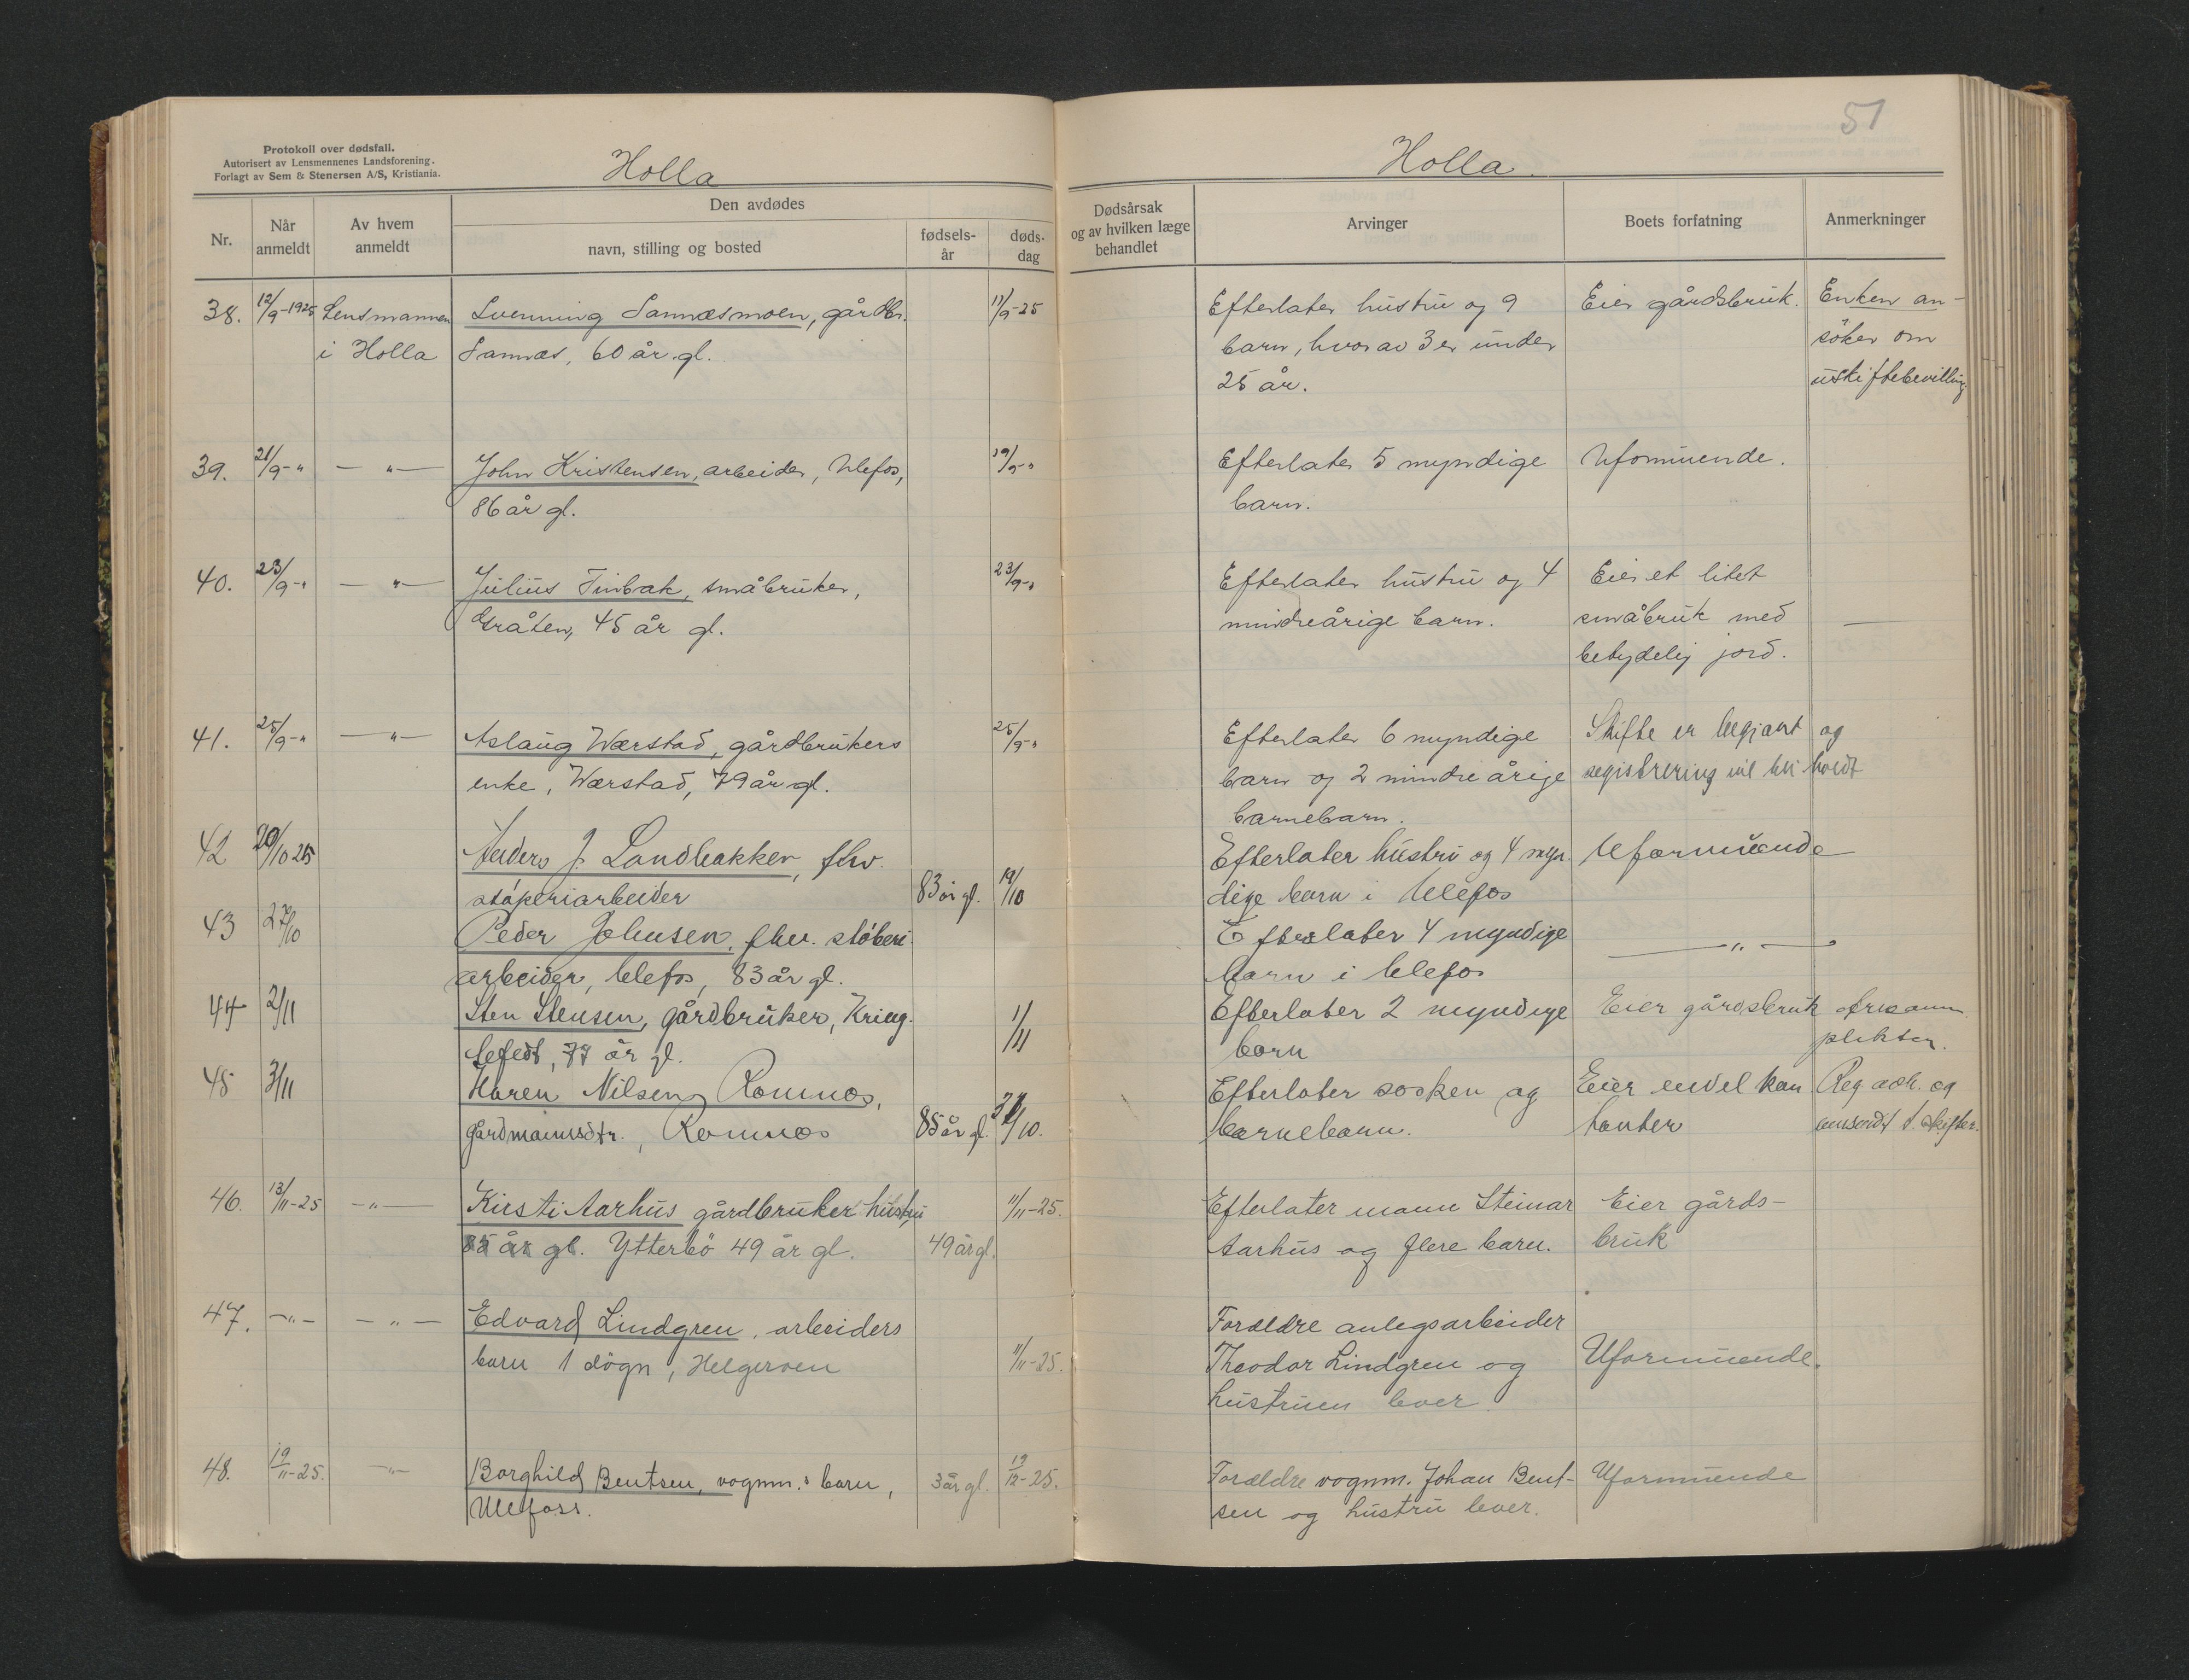 51
Protokoll over dødsfall.
Autorisert av Lensmennenes Landsforening.
Forlagt av Sem & Stenersen A/S, Kristiania.
Holla
Holla.
Nr.
Når anmeldt
Av hvem anmeldt
Den avdødes
navn, stilling og bosted
fødsels-år
døds-dag
Dødsårsak og av hvilken læge behandlet
Arvinger
Boets forfatning
Anmerkninger
38. 12/9-1925 Lensmannen Svenning Sannæsmoen, gårdbr. 11/9-25 Efterlater hustru og 9 Eier gårdsbruk. Enken an-
i Holla Sannæs, 60 år gl. barn, hvorav 3 er under søker om
25 år. uskiftebevilling.
39. 21/9-" — " — John Kristensen, arbeider, Ulefos, 19/9-" Efterlater 5 myndige Uformuende.
86 år gl. barn.
40. 23/9-" — " — Julius Tinbak, småbruker, 23/9-" Efterlater hustru og 4 Eier et litet
Gråten, 45 år gl. mindreårige barn. småbruk med —
betydelig jord.
41. 25/9-" — " — Aslaug Wærstad, gårdbrukers 25/9-" Efterlater 6 myndige Skifte er begjært og
enke, Wærstad, 79 år gl. barn og 2 mindreårige registrering vil bli holdt
barnebarn.
42 20/10 25 Anders J. Landbakken, fhv. Efterlater hustru og 4 myn- Uformuende
støperiarbeider 83 år gl. 19/10 dige barn i Ulefos
43 27/10 Peder Johnsen, fhv. støberi- Efterlater 4 myndige — " —
arbeider, Ulefos, 83 år gl. barn i Ulefos
44 2/11 Sten Stensen, gårdbruker, Kring- 1/11 Efterlater 2 myndige Eier gårdsbruk
77 år gl. barn
45 3/11 Karen Nilsen Romnes, Efterlater søsken og Eier endel kon- Reg. adh. og
gårdmannsdtr., Romnes 85 år gl. 10. barnebarn. tanter
46. 13/11-25 — " — Kirsti Aarhus gårdbruker hustru 11/11-25. Efterlater mann Steinar Eier gårds-
år gl. Ytterbö 49 år gl. 49 år gl. Aarhus og flere barn. bruk
47. — " — — " — Edvard Lindgren, arbeiders Forældre anlegsarbeider
barn 1 dögn, Helgeroen 11/11-25. Theodor Lindgren og Uformuende.
hustruen lever.
48. 19/11-25. — " — Borghild Bentsen, vognm.s barn, 3 år gl. 19/12-25. Forældre vognm. Johan Bent- Uformuende
Ulefoss. sen og hustru lever.